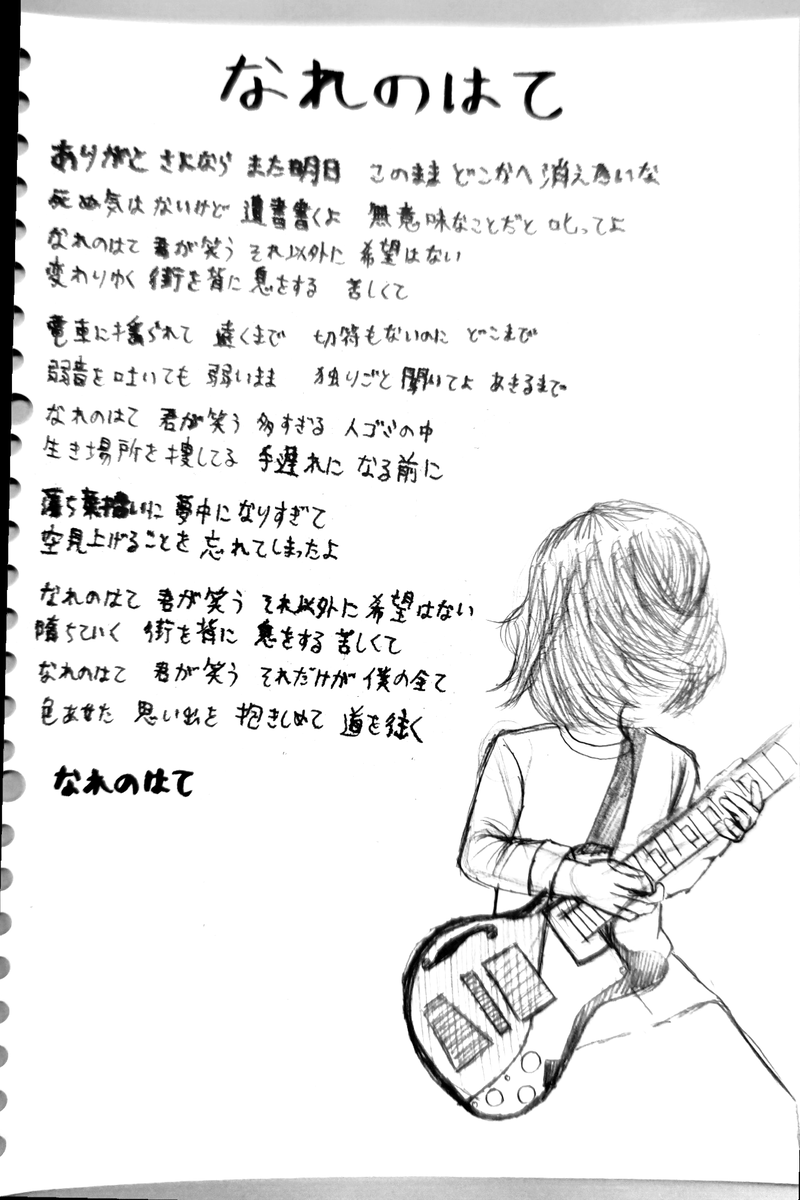 なれのはて
ありがと さよなら また明日 このまま どこかへ 消えたいな
死ぬ気は ないけど 遺書書くよ 無意味なことだと 叱ってよ
なれのはて 君が笑う それ以外に 希望はない
変わりゆく 街を背に 息をする 苦しくて
電車に揺られて 遠くまで 切符もないのに どこまで
弱音を吐いても 弱いまま 独りごと聞いてよ あきるまで
なれのはて 君が笑う 多すぎる 人ゴミの中
生き場所を捜してる 手遅れに なる前に
落ち葉拾いに 夢中になりすぎて
空見上げることを 忘れてしまったよ
なれのはて 君が笑う それ以外に希望はない
堕ちていく 街を背に 息をする 苦しくて
なれのはて 君が笑う それだけが 僕の全て
色あせた 思い出を 抱きしめて 道を往く
なれのはて